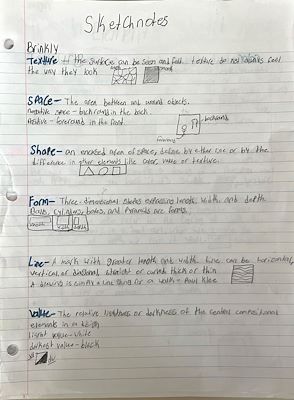 Sketchnotes
Brinkly
Texture - the surface can be seen and felt. texture do not always feel
the way they look
Space - The area between and around objects.
negative space - background in the back.
Positive - foreground in the front.
background
Shape - an enclosed area of space, define by either line or by the
difference in other elements like color value or texture.
Form - Three-dimensional shapes expressing length, width, and depth.
Balls, cylinders, boxes, and Pyramids are forms.
Line - A mark with greater length and width. Line can be horizontal,
vertical, or diagonal, straight or curved, thick or thin
A drawing is simply a line going for a walk - Paul Klee
Value - The relative lightness or darkness of the central compositional
elements in a
lightest value - white
darkest value - black